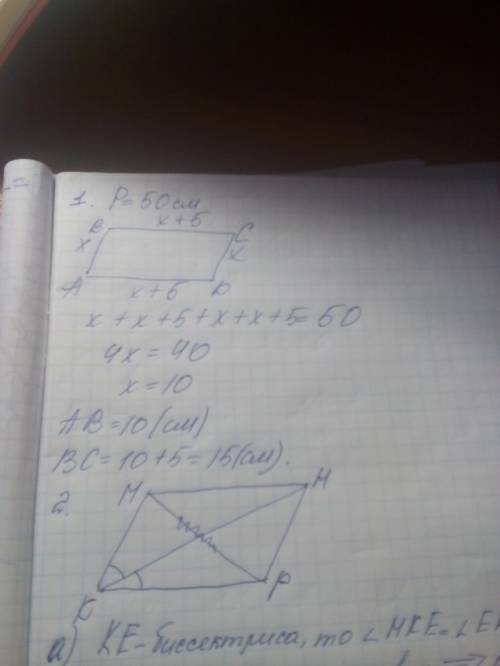 1. P = 50 см
B x + 5 C
x x
A x + 5 D
x + x + 5 + x + x + 5 = 50
4x = 40
x = 10
AB = 10 (см)
BC = 10 + 5 = 15 (см).
2.
M H
K P
а) KE - биссектриса, то ∠MKE = ∠E